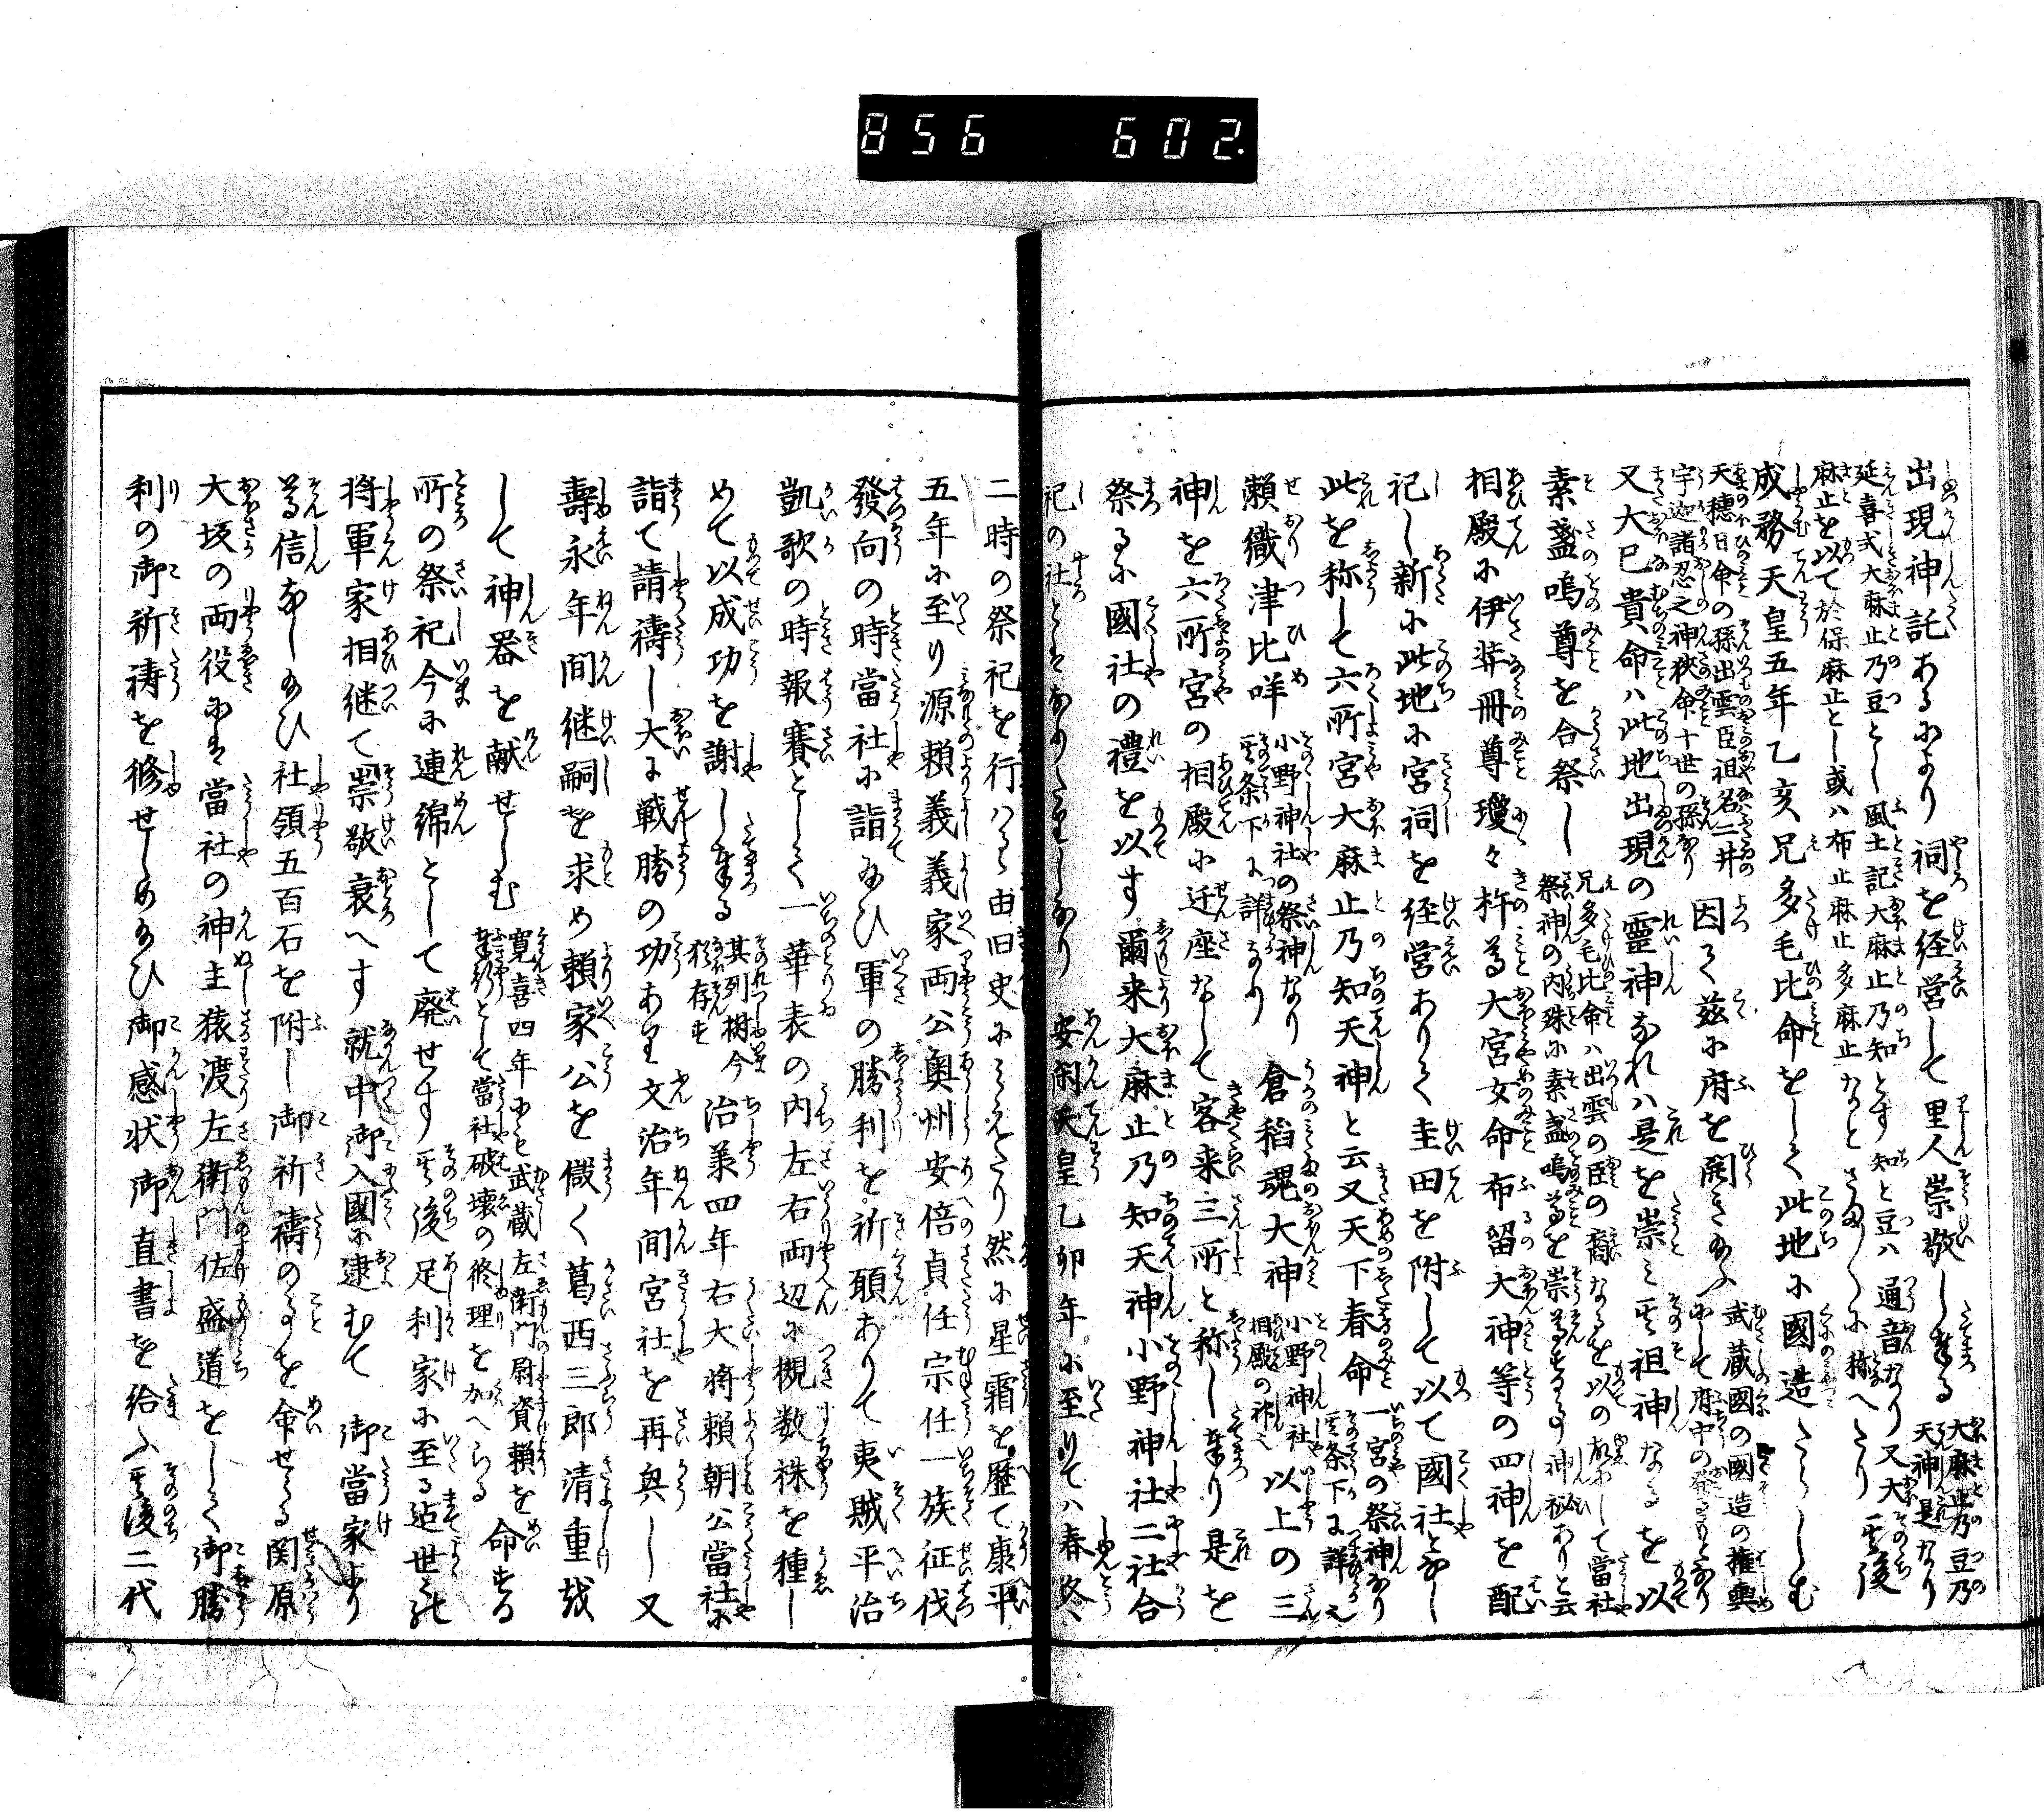 856 602.
出現神託あるにより祠を経営して里人崇敬し奉る 大麻止乃豆乃天神是なり
延喜式大麻止乃豆とし風土記大麻止乃知とす知と豆ハ通音なり又大
麻止を以て於保麻止とし或ハ布止麻止多麻止なとさま〳〵に称へたり 其後
成務天皇五年乙亥兄多毛比命をして此地に國造たらしむ
天穂日命の孫出雲臣祖名二井
宇迦諸忍之神狭命十世の孫なり 因て茲に府を開き給ふ 武蔵國の國造の権輿にして府中の発るもとなり
又大己貴命ハ此地出現の霊神なれハ是を崇ミ其祖神なるを以
素盞嗚尊を合祭し 兄多毛比命ハ出雲の臣の裔なるを以の故にして當社
祭神の内殊に素盞嗚尊を崇尊する事神秘ありと云
相殿に伊弉冊尊瓊々杵尊大宮女命布留大神等の四神を配
祀し新に此地に宮祠を経営ありて圭田を附して以て國社となし
此を称して六所宮大麻止乃知天神と云又天下春命 一宮の祭神なり其条下に詳也
瀬織津比咩 小野神社の祭神なり其条下に詳なり 倉稲魂大神 小野神社相殿の神也 以上の三
神を六所宮の相殿に迁座なして客来三所と称し奉り是を
祭るに國社の禮を以す爾来大麻止乃知天神小野神社二社合
祀の社とハなりたりしなり 安閑天皇乙卯年に至りてハ春冬
二時の祭祀を行ハる由旧史にミえたり然に星霜を歴て康平
五年に至り源頼義義家両公奥州安倍貞任宗任一族征伐
發向の時當社に詣給ひ軍の勝利を祈願ありて夷賊平治
凱歌の時報賽として一華表の内左右両辺に槻数株を種し
めて以成功を謝し奉る 其列樹今猶存す 治承四年右大将頼朝公當社に
詣て請禱し大に戦勝の功あり文治年間宮社を再興し又
壽永年間継嗣を求め頼家公を儲く葛西三郎清重をして
して神器を献せしむ 寛喜四年にも武蔵左衛門尉資頼を
奉行として當社破壊の修理を加へらる 命する
所の祭祀今に連綿として廃せす其後足利家に至る迄世々の
将軍家相継て崇敬衰へす就中御入國に逮むて 御當家より
尊信なし給ひ社領五百石を附し御祈禱の事を命せらる関原
大坂の両役にも當社の神主猿渡左衛門佐盛道をして御勝
利の御祈祷を修せしめ給ひ御感状御直書を給ふ其後二代